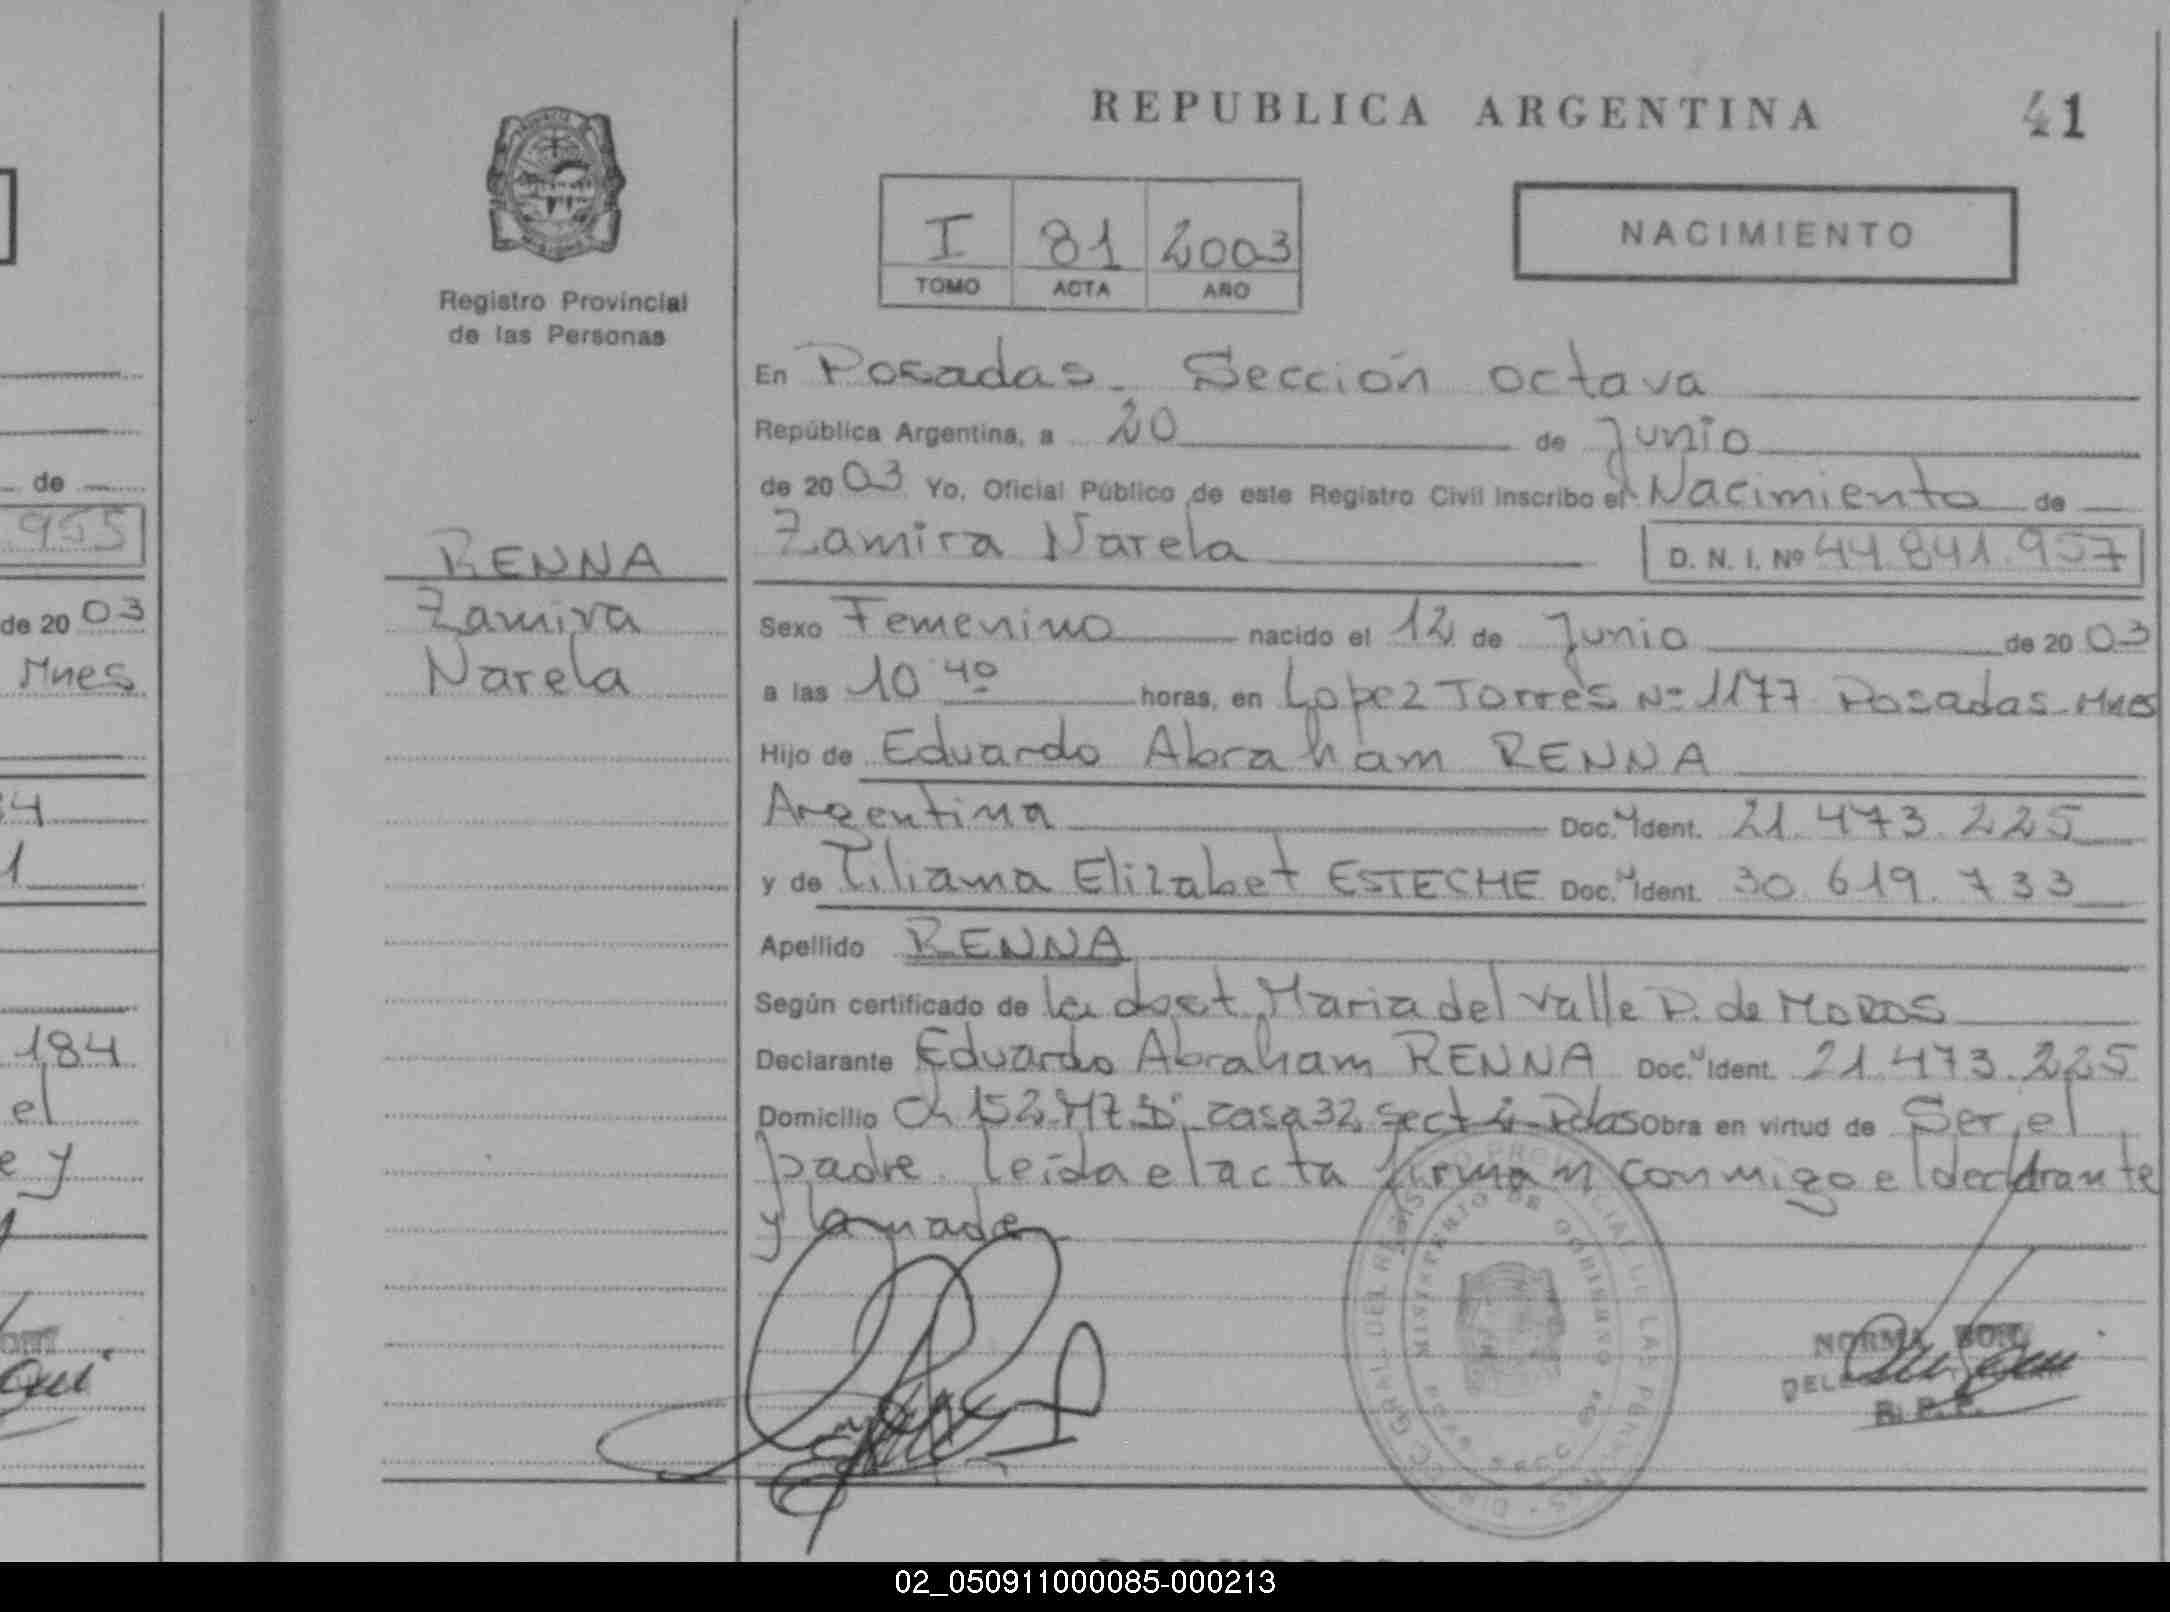 REPUBLICA ARGENTINA
41
I 81 2003
TOMO ACTA AÑO
NACIMIENTO
Registro Provincial
de las Personas
En Posadas - Sección octava
República Argentina, a 20 de Junio
de 2003 Yo, Oficial Público de este Registro Civil inscribo el Nacimiento de
Zamira Narela D. N. I. Nº 44.841.957
RENNA
Zamira
Narela
Sexo Femenino nacido el 12 de Junio de 2003
a las 10 40 horas, en Lopez Torres Nº 1177 Posadas - Mnes
Hijo de Eduardo Abraham RENNA
Argentina Doc. Ident. 21.473.225
y de Liliana Elizabet ESTECHE Doc. Ident. 30.619.733
Apellido RENNA
Según certificado de la Maria del Valle P. de
Declarante Eduardo Abraham RENNA Doc. Ident. 21.473.225
Domicilio Ch 152 casa 32 Sect Pdas Obra en virtud de Ser el
padre. leida el acta firman conmigo el declarante
y la madre
DIRECC. GRAL. DEL REGISTRO PROVINCIAL DE LAS PERSONAS
MINISTERIO DE GOBIERNO
NORMA
R. P. P.
955
de
de 2003
Mnes
184
el
e y
02_050911000085-000213